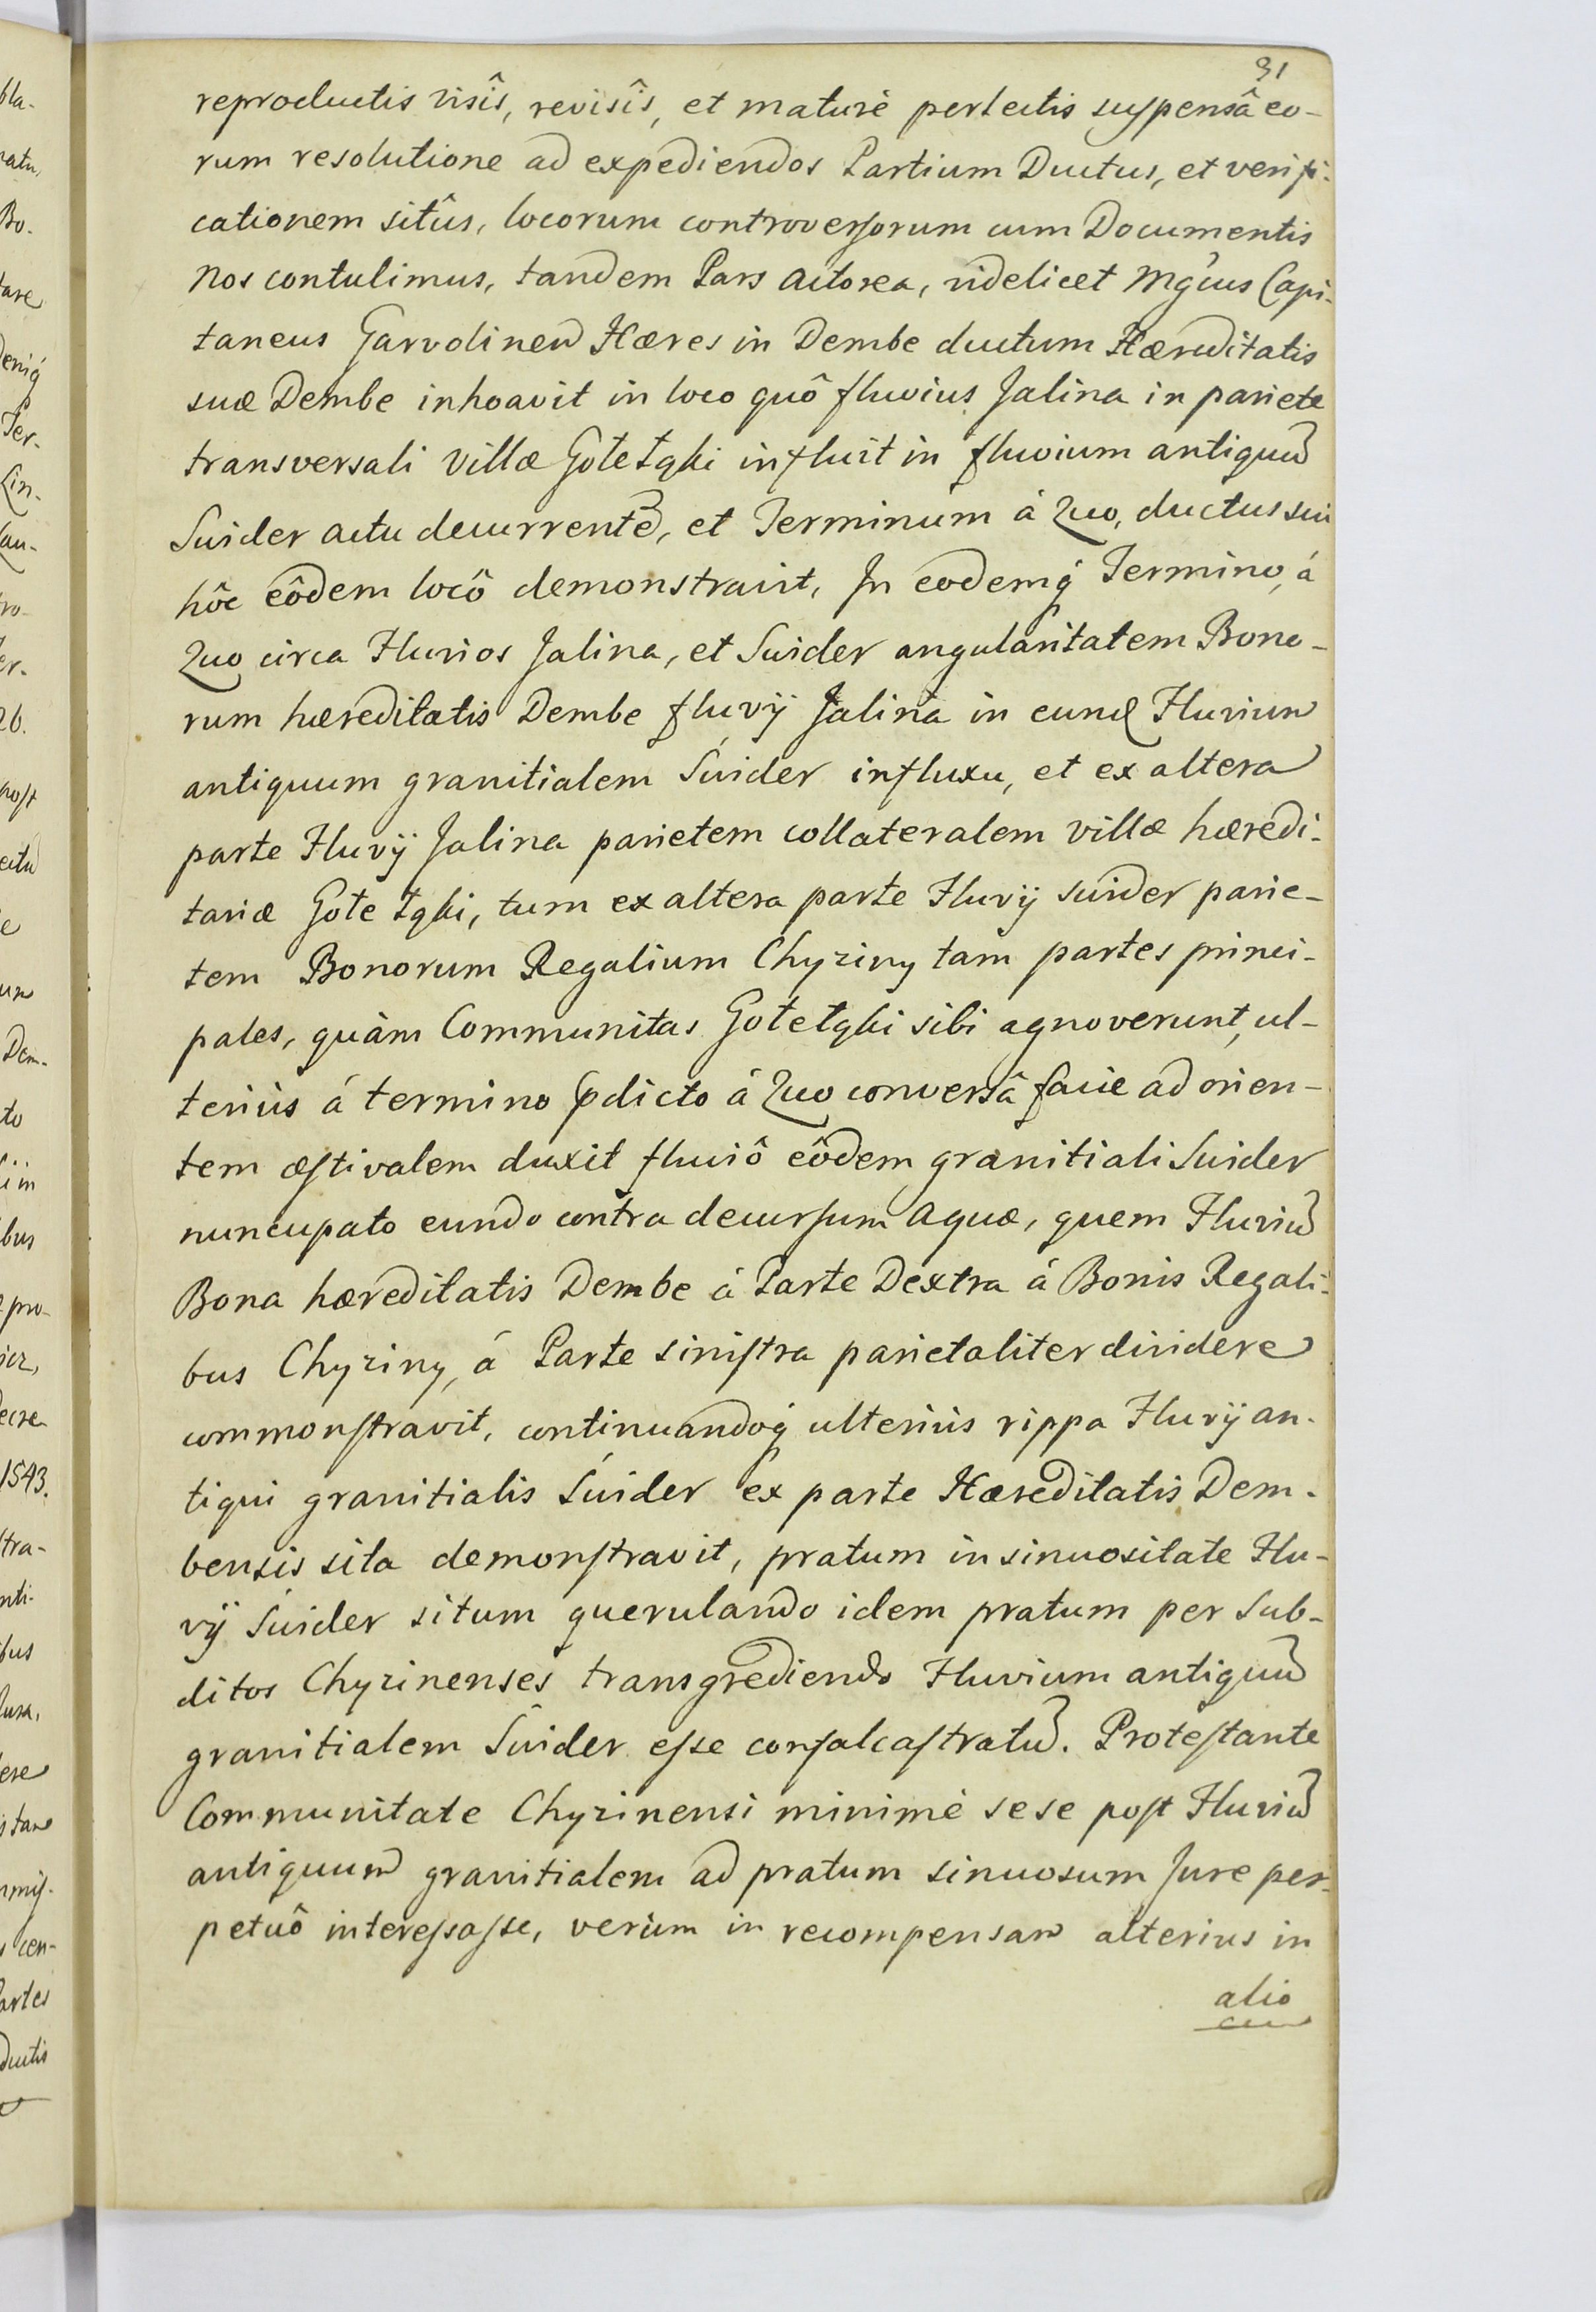 31
reproductis visîs, revisîs, et maturè perlectis suspensâ eo-
rum resolutione ad expediendos Partium Ductus, et verifi-
cationem sitûs, locorum controversorum cum Documentis
Nos contulimus, tandem Pars Actorea, videlicet Mgcus Capi-
taneus Garvolinen Hæres in Dembe ductum Hæreditatis
suæ Dembe inhoavit in loco quô fluvius Jalina in pariete
transversali villæ Gote Łąki influit in fluvium antiquũ
Swider actu decurrentẽ, et Terminum à Quo, ductus sui
hôc eôdem locô demonstravit, In eodemq́ Termino, á
Quo circa Fluvios Jalina, et Swider angularitatem Bono-
rum hæreditatis Dembe fluvÿ Jalina in eund Fluvium
antiquum granitialem Swider influxu, et ex altera
parte Fluvÿ Jalina parietem collateralem villæ hæredi-
tariæ Gote Łąki, tum ex altera parte Fluvÿ Swider parie-
tem Bonorum Regalium Chyziny tam partes princi-
pales, quàm Communitas Gote Łąki sibi agnoverunt, ul-
teriùs á termino pdicto á Quo conversâ facie ad orien-
tem æstivalem duxit fluviô eôdem granitiali Swider
nuncupato eundo contra decursum Aquæ, quem Fluviũ
Bona hæreditatis Dembe à Parte Dextra á Bonis Regali-
bus Chyziny, á Parte sinistra parietaliter dividere
commonstravit, continuandoq́ ulteriùs rippa Fluvÿ an-
tiqui granitialis Swider ex parte Hæreditatis Dem-
bensis sita demonstravit, pratum in sinuositate Flu-
vÿ Swider situm querulando idem pratum per Sub-
ditos Chyzinenses transgrediendo Fluvium antiquũ
granitialem Swider esse confalcastratũ. Protestante
Communitate Chyzinensi minimè sese post Fluviũ
antiquum granitialem ad pratum sinuosum Jure per-
petuô interessasse, verùm in recompensam alterius in
alio